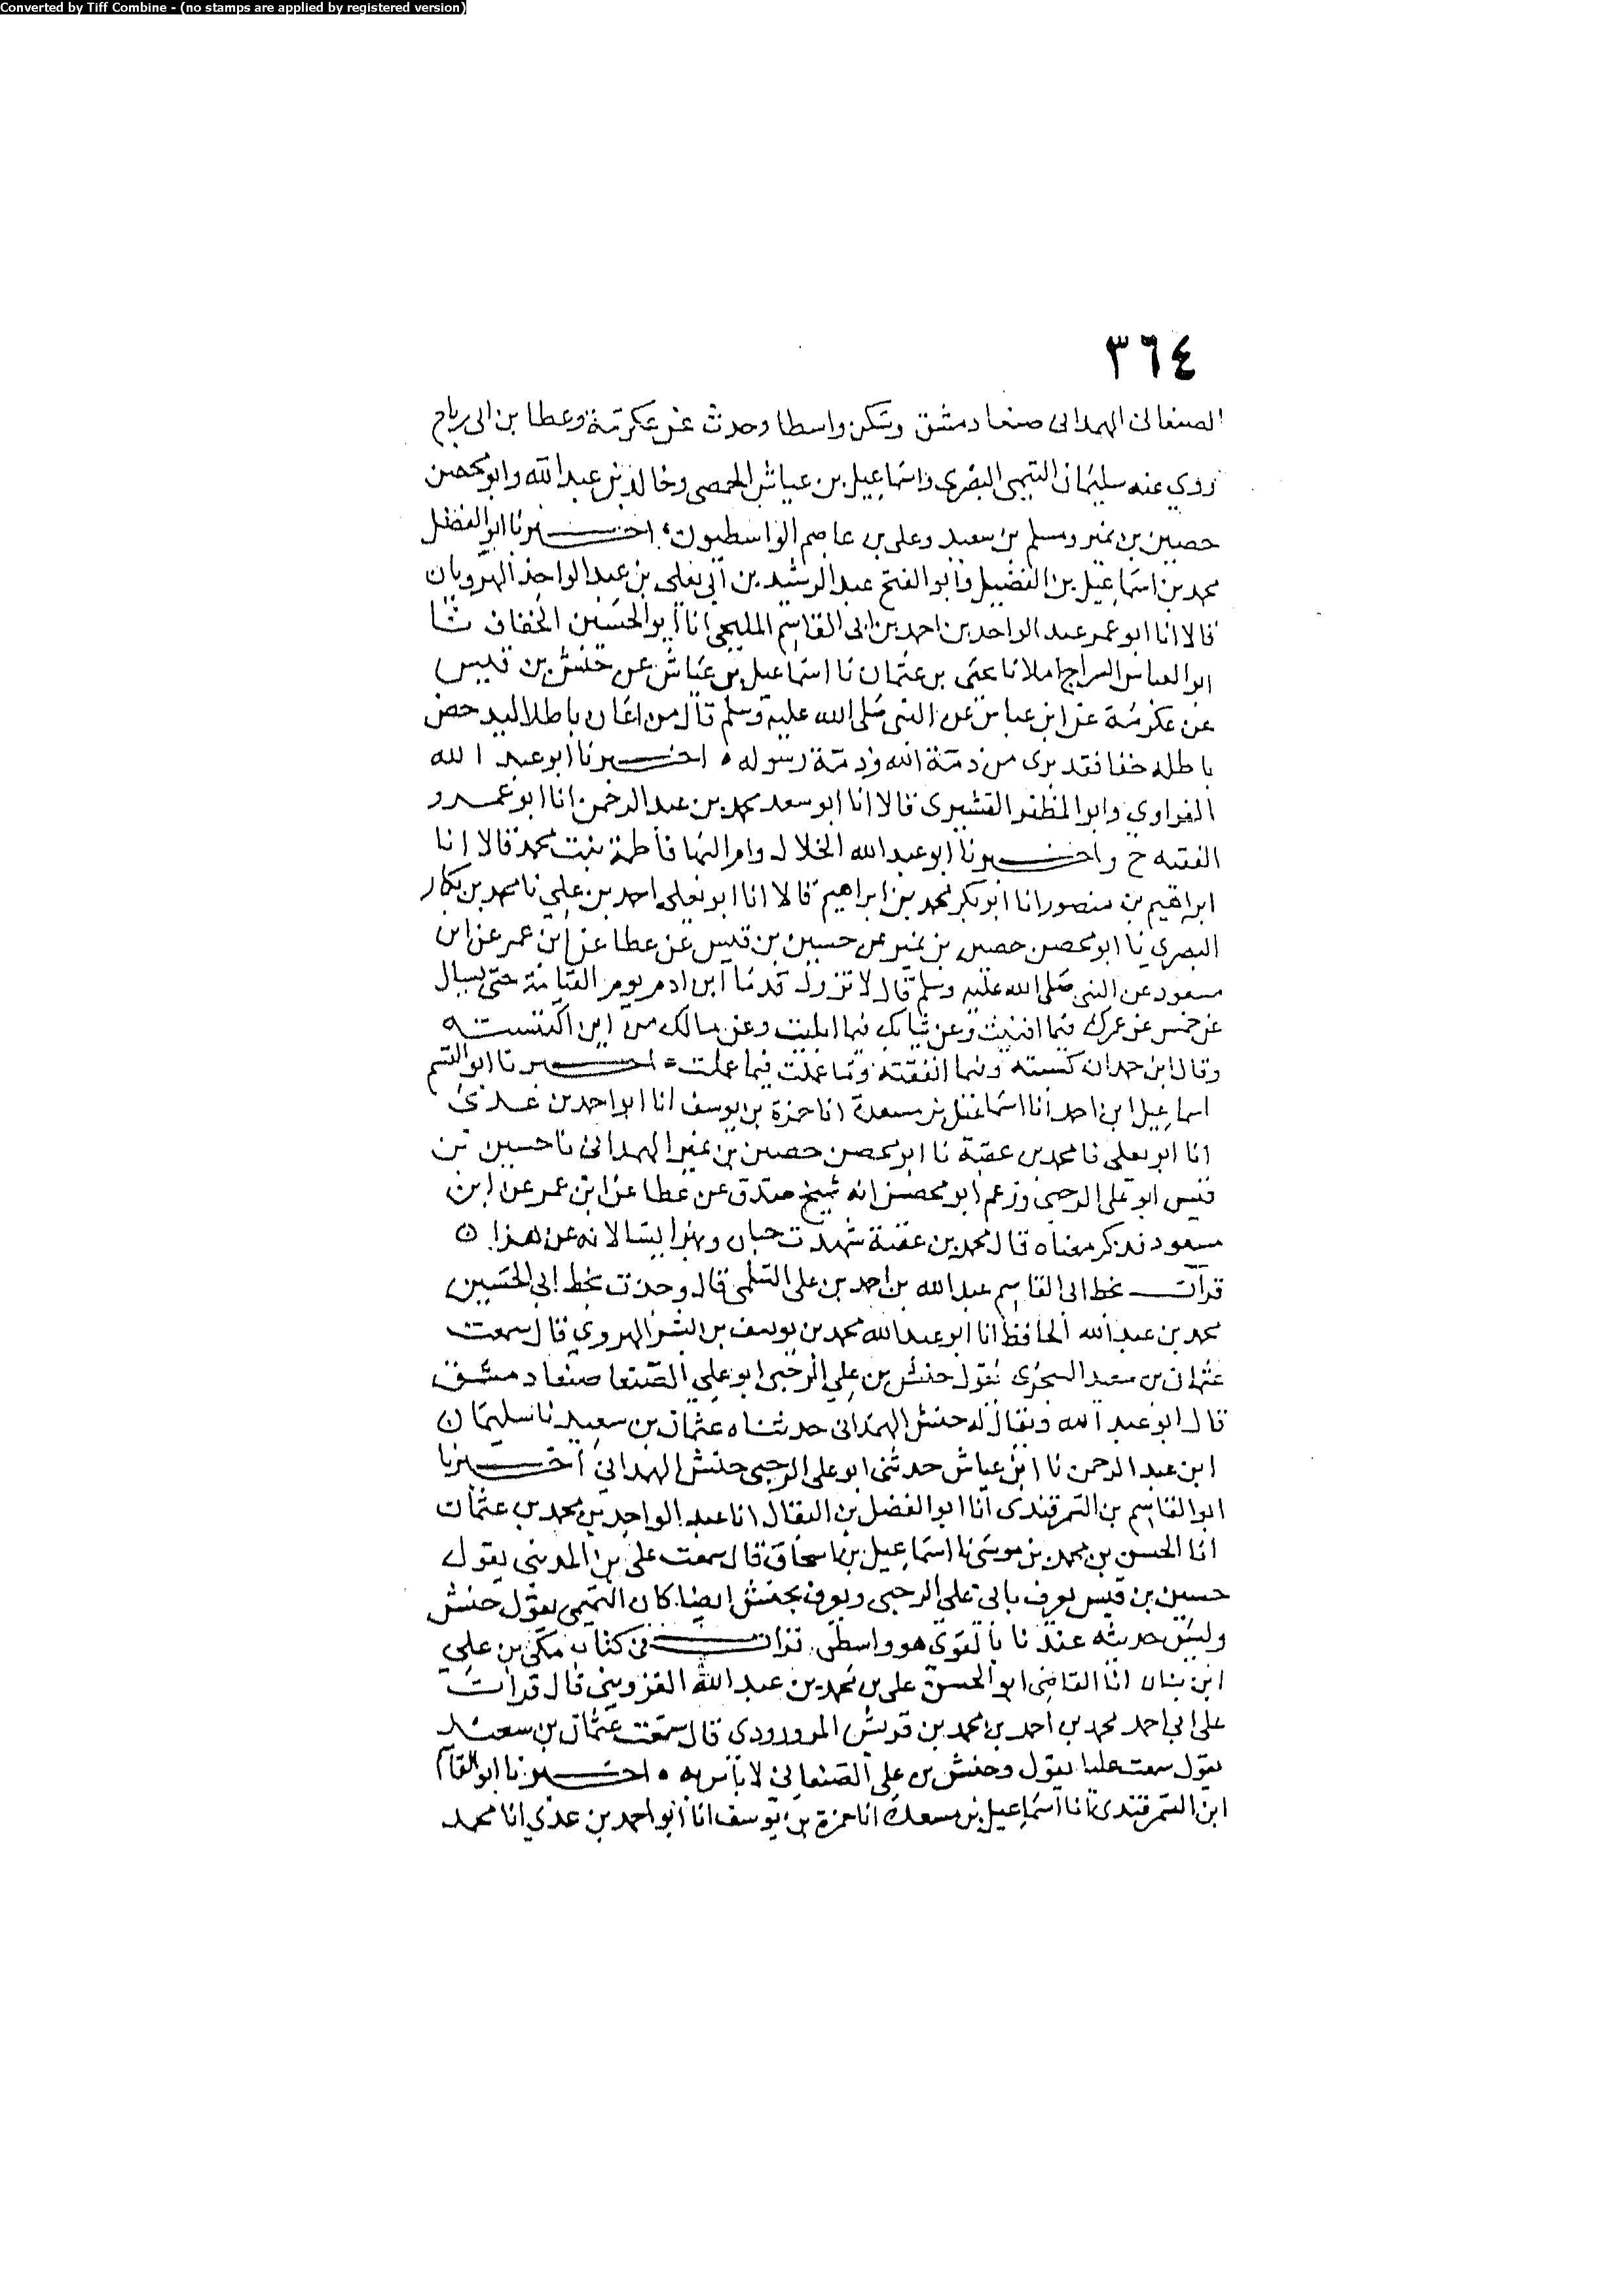 Converted by Tiff Combine - (no stamps are applied by registered version)
٣٦٤
الصنعانى الهمدانى صنعا دمشق وسكن واسطا وحدث عن عكرمة وعطا بن ابى رباح
روي عنه سليمان التيمى البصرى واسماعيل بن عياش الحمصى وخالد بن عبد الله وابو محصن
حصين بن نمير ومسلم بن سعيد وعلى بن عاصم الواسطيون، اخبرنا ابو الفضل
محمد بن اسماعيل بن الفضيل وابو الفتح عبد الرشيد بن ابي يعلى بن عبد الواحد الهرويان
قالا انا ابو عمر عبد الواحد بن احمد بن ابى القاسم المليحي انا ابو الحسين الخفاف نا
ابو العباس السراج املا نا يحيى بن عثمان نا اسماعيل بن عياش عن حنش بن قيس
عن عكرمة عن ابن عباس عن النبى صلى الله عليه وسلم قال من اعان باطلا ليدحض
باطله حقا فقد برى من ذمة الله وذمة رسوله ٥ اخبرنا ابو عبد الله
الفراوي وابو المظفر القشيرى قالا انا ابو سعد محمد بن عبد الرحمن انا ابو عمرو
الفقيه ح واخبرنا ابو عبد الله الخلال وام البها فاطمة بنت محمد قالا انا
ابراهيم بن منصور انا ابو بكر محمد بن ابراهيم قالا انا ابو يعلى احمد بن علي نا محمد بن بكار
البصري نا ابو محصن حصين بن نمير عن حسين بن قيس عن عطا عن ابن عمر عن ابن
مسعود عن النبى صلى الله عليه وسلم قال لا تزول قدما ابن ادم يوم القيامة حتى يسال
عن خمس عن عمرك فيما افنيت وعن شبابك فيما ابليت وعن مالك من اين اكتسبته
وقال ابن حمدان كسبته وفيما انفقته وما عملت فيما علمت ٥ اخبرنا ابو القسم
اسماعيل ابن احمد انا اسماعيل بن مسعدة انا حمزة بن يوسف انا ابو احمد بن عدي
انا ابو يعلى نا محمد بن عقبة نا ابو محصن حصين بن نمير الهمدانى نا حسين بن
قيس ابو على الرحبى وزعم ابو محصن انه شيخ صدق عن عطا عن ابن عمر عن ابن
مسعود فذكر معناه قال محمد بن عقبة شهدت حبان وبهزا يسالانه عن هذا ٥
قرات بخط ابى القاسم عبد الله بن احمد بن على السلمى قال وجدت بخط ابي الحسين
محمد بن عبد الله الحافظ انا ابو عبد الله محمد بن يوسف بن البشر الهروي قال سمعت
عثمان بن سعيد السجزى يقول حنش بن علي الرحبى ابو علي الصنعا صنعا دمشق
قال ابو عبد الله ويقال له حنش الهمدانى حدثناه عثمان بن سعيد نا سليمان
ابن عبد الرحمن نا ابن عياش حدثنى ابو على الرحبى حنش الهمدانى اخبرنا
ابو القاسم بن السمرقندى انا ابو الفضل بن البقال انا عبد الواحد بن محمد بن عثمان
انا الحسن بن محمد بن موسى نا اسماعيل بن اسحاق قال سمعت على بن المدينى يقول
حسين بن قيس يعرف بابى على الرحبى ويعرف بحنش ايضا كان التيمى يقول حنش
وليس حديثه عندنا بالقوي هو واسطى. قرات فى كتاب مكى بن علي
ابن بنان انا القاضى ابو الحسن على بن محمد بن عبد الله القزوينى قال قرات
على ابى احمد محمد بن احمد بن محمد بن قريش المروروذى قال سمعت عثمان بن سعيد
يقول سمعت عليا يقول وحنش بن علي الصنعانى لا باس به ٥ اخبرنا ابو القاسم
ابن السمرقندى انا اسماعيل بن مسعدة انا حمزة بن يوسف انا ابو احمد بن عدي انا محمد